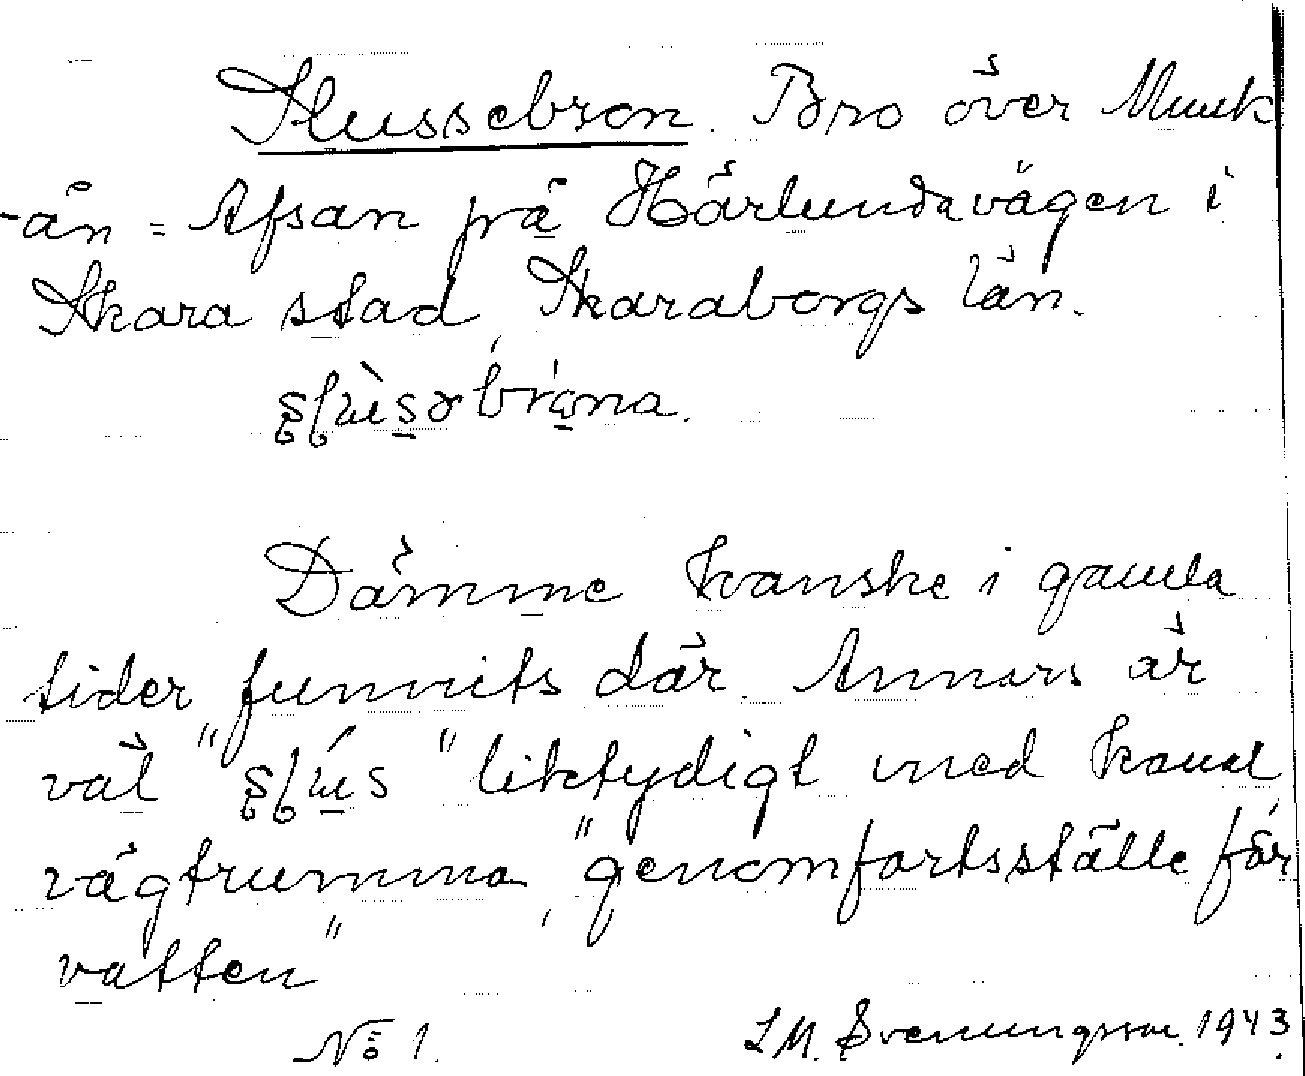 Slussebron. Bro över Munk
-ån = Afsan på Härlundavägen i
Skara stad, Skaraborgs län.
Dämme kanske i gamla
tider funnits där. Annars är
väl "slus" liktydigt med kanal
vägtrumma, "genomfartsställe för
vatten"
No 1. L M. Svenungsson. 1943.